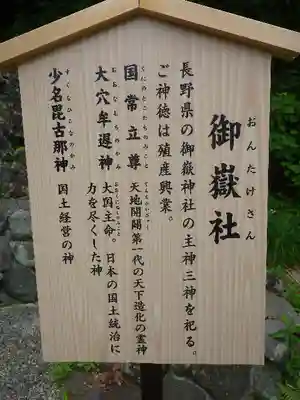 御嶽社
おんたけさん
長野県の御嶽神社の主神三神を祀る。
ご神徳は殖産興業。
国常立尊
くにのとこたちのみこと
天地開闢第一代の天下造化の霊神
てんちかいびゃく
大穴牟遅神
おおなむちのかみ
大国主命。日本の国土統治に
おおくにぬしのみこと
力を尽くした神
少名毘古那神
すくなひこなのかみ
国土経営の神